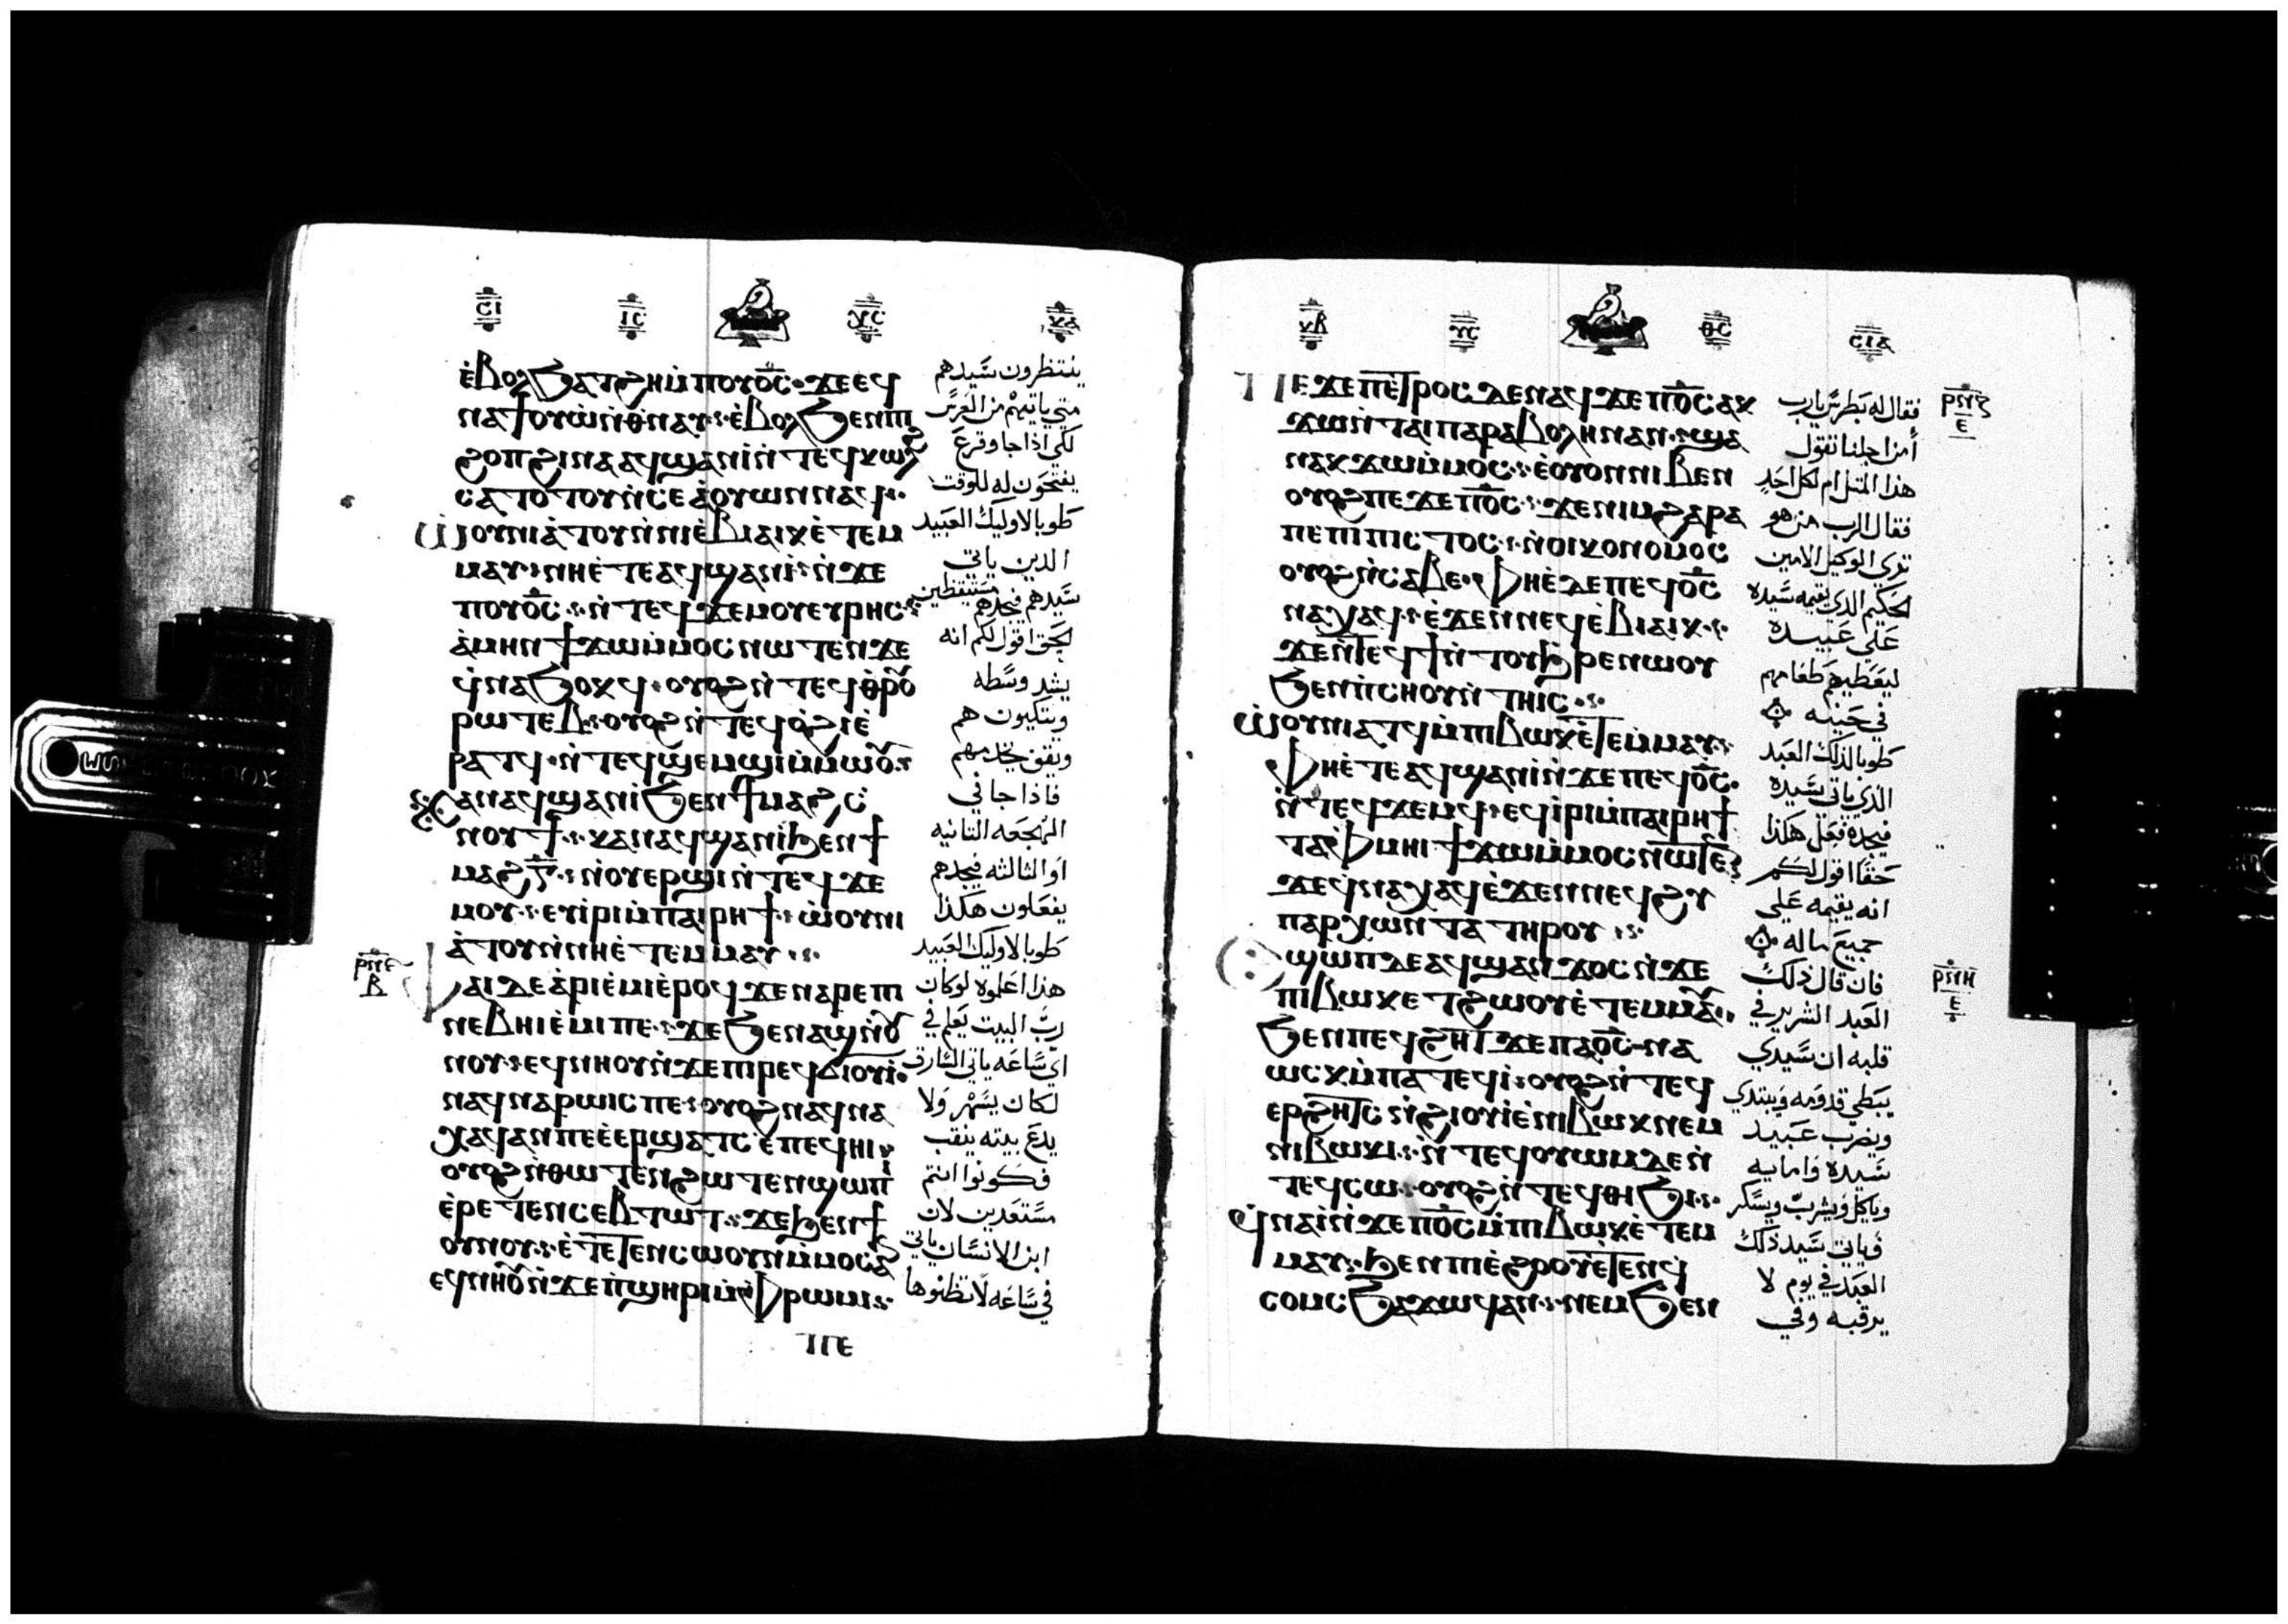 ⲉ̀ⲃⲟⲗϧⲁⲧϩⲏⲙ̀ⲡⲟⲩⲟ̅ⲥ̅ ϫⲉⲉϥ
ⲛⲁϯⲟⲩⲱⲛ̀ⲑⲛⲁⲩ ⲉ̀ⲃⲟⲗϧⲉⲛⲡⲓ
ϩⲟⲡϩⲓⲛⲁⲁϥϣⲁⲛⲓ̀ⲛ̀ⲧⲉϥⲕⲱⲗϩ
ⲥⲁⲧⲟⲧⲟⲩⲛ̀ⲥⲉⲁ̀ⲟⲩⲱⲛⲛⲁϥ
ⲱ̀ⲟⲩⲛⲓⲁ̀ⲧⲟⲩⲛ̀ⲛⲓⲉ̀ⲃⲓⲁⲓⲕⲉ̀ⲧⲉⲙ
ⲙⲁⲩ ⲛⲏⲉ̀ⲧⲉⲁϥϣⲁⲛⲓ̀ ⲛ̀ϫⲉ
ⲡⲟⲩⲟ̅ⲥ̅ ⲛ̀ⲧⲉϥϫⲉⲙⲟⲩⲉⲩⲣⲏⲥ
ⲁ̀ⲙⲏⲛϯϫⲱⲙ̀ⲙⲟⲥⲛⲱⲧⲉⲛϫⲉ
ϥ̀ⲛⲁϧⲟⲕϥ ⲟⲩⲟϩⲛ̀ⲧⲉϥⲑⲣⲟⲩ
ⲣⲱⲧⲉⲃ ⲟⲩⲟϩⲛ̀ⲧⲉϥⲟ̀ϩⲓⲉ̀
ⲣⲁⲧϥ ⲛ̀ⲧⲉϥϣⲉⲙϣⲓⲙ̀ⲙⲱⲟⲩ
ⲕⲁⲛⲁϥϣⲁⲛⲓ̀ϧⲉⲛϯⲙⲁϩⲥ̅
ⲛⲟⲩϯ ⲕⲁⲛⲁϥϣⲁⲛⲓ̀ϧⲉⲛϯ
ⲙⲁϩⲅ̅ ⲛ̀ⲟⲩⲉⲣϣⲓⲛ̀ⲧⲉϥϫⲉ
ⲙⲟⲩ ⲉⲩⲓ̀ⲣⲓⲙ̀ⲡⲁⲓⲣⲏϯ ⲱ̀ⲟⲩⲛⲓ
ⲁ̀ⲧⲟⲩⲛ̀ⲛⲏⲉ̀ⲧⲉⲙⲙⲁⲩ
ⲫⲁⲓⲇⲉⲁ̀ⲣⲓⲉ̀ⲙⲓⲉ̀ⲣⲟϥϫⲉⲛⲁⲣⲉⲡⲓ
ⲛⲉⲃⲏⲓⲉ̀ⲙⲓⲡⲉ ϫⲉϧⲉⲛⲁϣⲛ̀ⲟⲩ
ⲛⲟⲩ ⲉϥⲛⲏⲟⲩⲛ̀ϫⲉⲡⲓⲣⲉϥϭⲓⲟⲩⲓ̀
ⲛⲁϥⲛⲁⲣⲱⲓⲥⲡⲉ ⲟⲩⲟϩⲛⲁϥⲛⲁ
ⲭⲁϥⲁⲛⲡⲉⲉ̀ⲉⲣϣⲁⲧⲥⲉ̀ⲡⲉϥⲏⲓ
ⲟⲩⲟϩⲛ̀ⲑⲱⲧⲉⲛϩⲱⲧⲉⲛϣⲱⲡⲓ
ⲉ̀ⲣⲉⲧⲉⲛⲥⲉⲃⲧⲱⲧ ϫⲉϧⲉⲛϯ
ⲟⲩⲛⲟⲩ ⲉ̀ⲧⲉⲧⲉⲛⲥⲱⲟⲩⲛⲙ̀ⲙⲟⲥⲁⲛ
ⲉϥⲛⲏⲟⲩⲛ̀ϫⲉⲡ̀ϣⲏⲣⲓⲙ̀ⲫⲣⲱⲙⲓ
ⲡⲉ
ينتظرون سيدهم
متي ياتيهم من العرس
لكي اذا جا وقرع
يفتحون له للوقت
طوبا لاوليك العبيد
الدين ياتي
سيدهم فيجدهم مستيقظين
الحق اقول لكم انه
يشد وسطه
ويتكيون هم
ويقف يخدمهم
فاذا جا في
الهجعه الثانيه
او الثالثه فيجدهم
يفعلون هكذا
طوبا لاوليك العبيد
هذا اعلموه لو كان
رب البيت يعلم في
اي ساعه ياتي السارق
لكان يسهر ولا
يدع بيته ينقب
فكونوا انتم
مستعدين لان
ابن الانسان ياتي
في ساعه لا تظنوها
ⲡⲉϫⲉⲡⲉⲧⲣⲟⲥⲇⲉⲛⲁϥϫⲉⲡⲟ̅ⲥ̅ⲁⲕ
ϫⲱⲛ̀ⲧⲁⲓⲡⲁⲣⲁⲃⲟⲗⲏⲛⲁⲛ ϣⲁ
ⲛⲁⲕϫⲱⲙ̀ⲙⲟⲥ ⲉ̀ⲟⲩⲟⲛⲛⲓⲃⲉⲛ
ⲟⲩⲟϩⲡⲉϫⲉⲡⲟ̅ⲥ̅ ϫⲉⲛⲓⲙϩⲁⲣⲁ
ⲡⲉⲡⲓⲡⲓⲥⲧⲟⲥ ⲛ̀ⲟⲓⲕⲟⲛⲟⲙⲟⲥ
ⲟⲩⲟϩⲛ̀ⲥⲁⲃⲉ ⲫⲏⲉ̀ⲇⲉⲡⲉϥⲟ̅ⲥ̅
ⲛⲁⲭⲁϥ ⲉ̀ϫⲉⲛⲛⲉϥⲉ̀ⲃⲓⲁⲓⲕ
ϫⲉⲛ̀ⲧⲉϥϯⲛ̀ⲧⲟⲩϧⲣⲉⲛⲱⲟⲩ
ϧⲉⲛⲡ̀ⲥⲏⲟⲩⲛ̀ⲧⲏⲓⲥ
ⲱ̀ⲟⲩⲛⲓⲁⲧϥⲙ̀ⲡⲓⲃⲱⲕⲉ̀ⲧⲉⲙⲙⲁⲩ
ⲫⲏⲉ̀ⲧⲉⲁϥϣⲁⲛⲓ̀ⲛ̀ϫⲉⲡⲉϥⲟ̅ⲥ̅
ⲛ̀ⲧⲉϥϫⲉⲙϥ ⲉϥⲓ̀ⲣⲓⲙ̀ⲡⲁⲓⲣⲏϯ
ⲧⲁⲫⲙⲏⲓϯϫⲱⲙ̀ⲙⲟⲥⲛⲱⲧⲉⲛ
ϫⲉϥ̀ⲛⲁⲭⲁϥⲉ̀ϫⲉⲛⲛⲉϥϩⲩ
ⲡⲁⲣⲭⲱⲛⲧⲁⲧⲏⲣⲟⲩ
ⲉϣⲱⲡⲇⲉⲁϥϣⲁⲛϫⲟⲥⲛ̀ϫⲉ
ⲡⲓⲃⲱⲕⲉⲧϩⲱⲟⲩⲉ̀ⲧⲉⲙⲙⲁⲩ
ϧⲉⲛⲡⲉϥϩⲏⲧϫⲉⲡⲁⲟ̅ⲥ̅ⲛⲁ
ⲱⲥⲕⲙ̀ⲡⲁⲧⲉϥⲓ̀ ⲟⲩⲟϩⲛ̀ⲧⲉϥ
ⲉⲣϩⲏⲧⲥⲛ̀ϩⲓⲟⲩⲓ̀ⲉ̀ⲛⲓⲃⲱⲕⲛⲉⲙ
ⲛⲓⲃⲱⲕⲓ ⲛ̀ⲧⲉϥⲟⲩⲱⲙⲇⲉⲛ̀
ⲧⲉϥⲥⲱ ⲟⲩⲟϩⲛ̀ⲧⲉϥⲑⲓϧⲓ
ϥ̀ⲛⲁⲓ̀ⲛ̀ϫⲉⲡⲟ̅ⲥ̅ⲙ̀ⲡⲓⲃⲱⲕⲉ̀ⲧⲉⲙ
ⲙⲁⲩ ϧⲉⲛⲡⲓⲉ̀ϩⲟⲟⲩⲉ̀ⲧⲉⲛϥ
ⲥⲟⲙⲥϧⲁϫⲱϥⲁⲛ ⲛⲉⲙϧⲉⲛ
فقال له بطرس يا رب
أمن اجلنا تقول
هذا المتل ام لكل احد
فقال الرب من هو
ترى الوكيل الامين
الحكيم الدي يقيمه سيده
على عبيده
ليعطيهم طعامهم
في حينه
طوبا لذلك العبد
الذي ياتي سيده
فيجده فعل هكذا
حقا اقول لكم
انه يقيمه علي
جميع ماله
فان قال ذلك
العبد الشرير في
قلبه ان سيدي
يبطي قدومه ويبتدي
ويضرب عبيد
سيده وامايه
وياكل ويشرب ويسكر
فياتي سيد ذلك
العبد في يوم لا
يرقبه وفي